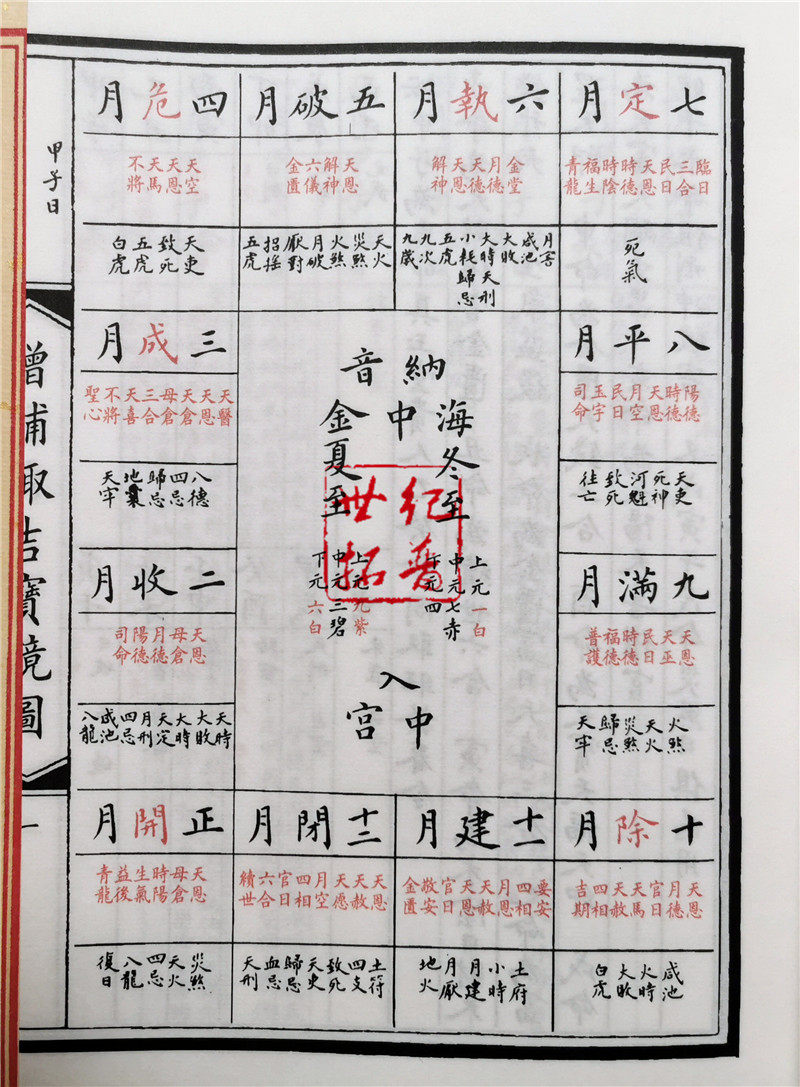 七定月
臨日 三合 民日 天恩 時德 時陰 福生 青龍
死氣
六執月
金堂 月德 天德 天恩 解神
月害 咸池 大敗 大時 天刑 小耗 歸忌 五虎 九次
五破月
天恩 解神 六儀 金匱
天火 災煞 火煞 月破 厭對 招搖 五虎
四危月
天空 天恩 天馬 不將
天吏 致死 五虎 白虎
八平月
陽德 時德 天恩 月空 民日 玉宇 司命
天吏 死神 河魁 致死 往亡
納音
海中金
冬至
上元一白
中元七赤
下元四
夏至
上元九紫
中元三碧
下元六白
入中宮
三成月
天醫 天恩 天倉 母倉 三合 天喜 不將 聖心
八德 四忌 歸忌 地囊 天牢
九滿月
天恩 天巫 民日 時德 福德 普護
火煞 天火 災煞 歸忌 天牢
二收月
天恩 母倉 月德 陽德 司命
天時 大敗 大時 天定 月刑 四忌 咸池 八龍
十除月
天恩 月德 官日 天馬 天赦 四相 吉期
咸池 火時 大敗 白虎
十一建月
要安 四相 月恩 天赦 天恩 官日 敬安 金匱
土府 小時 月建 月厭 地火
十二閉月
天恩 天赦 天愿 月空 四相 官日 六合 續世
土符 四支 致死 天吏 歸忌 血忌 天刑
正開月
天恩 母倉 時陽 生氣 益後 青龍
災煞 天火 四忌 八龍 復日
甲子日
增補取吉寶鏡圖
一
世紀普拓